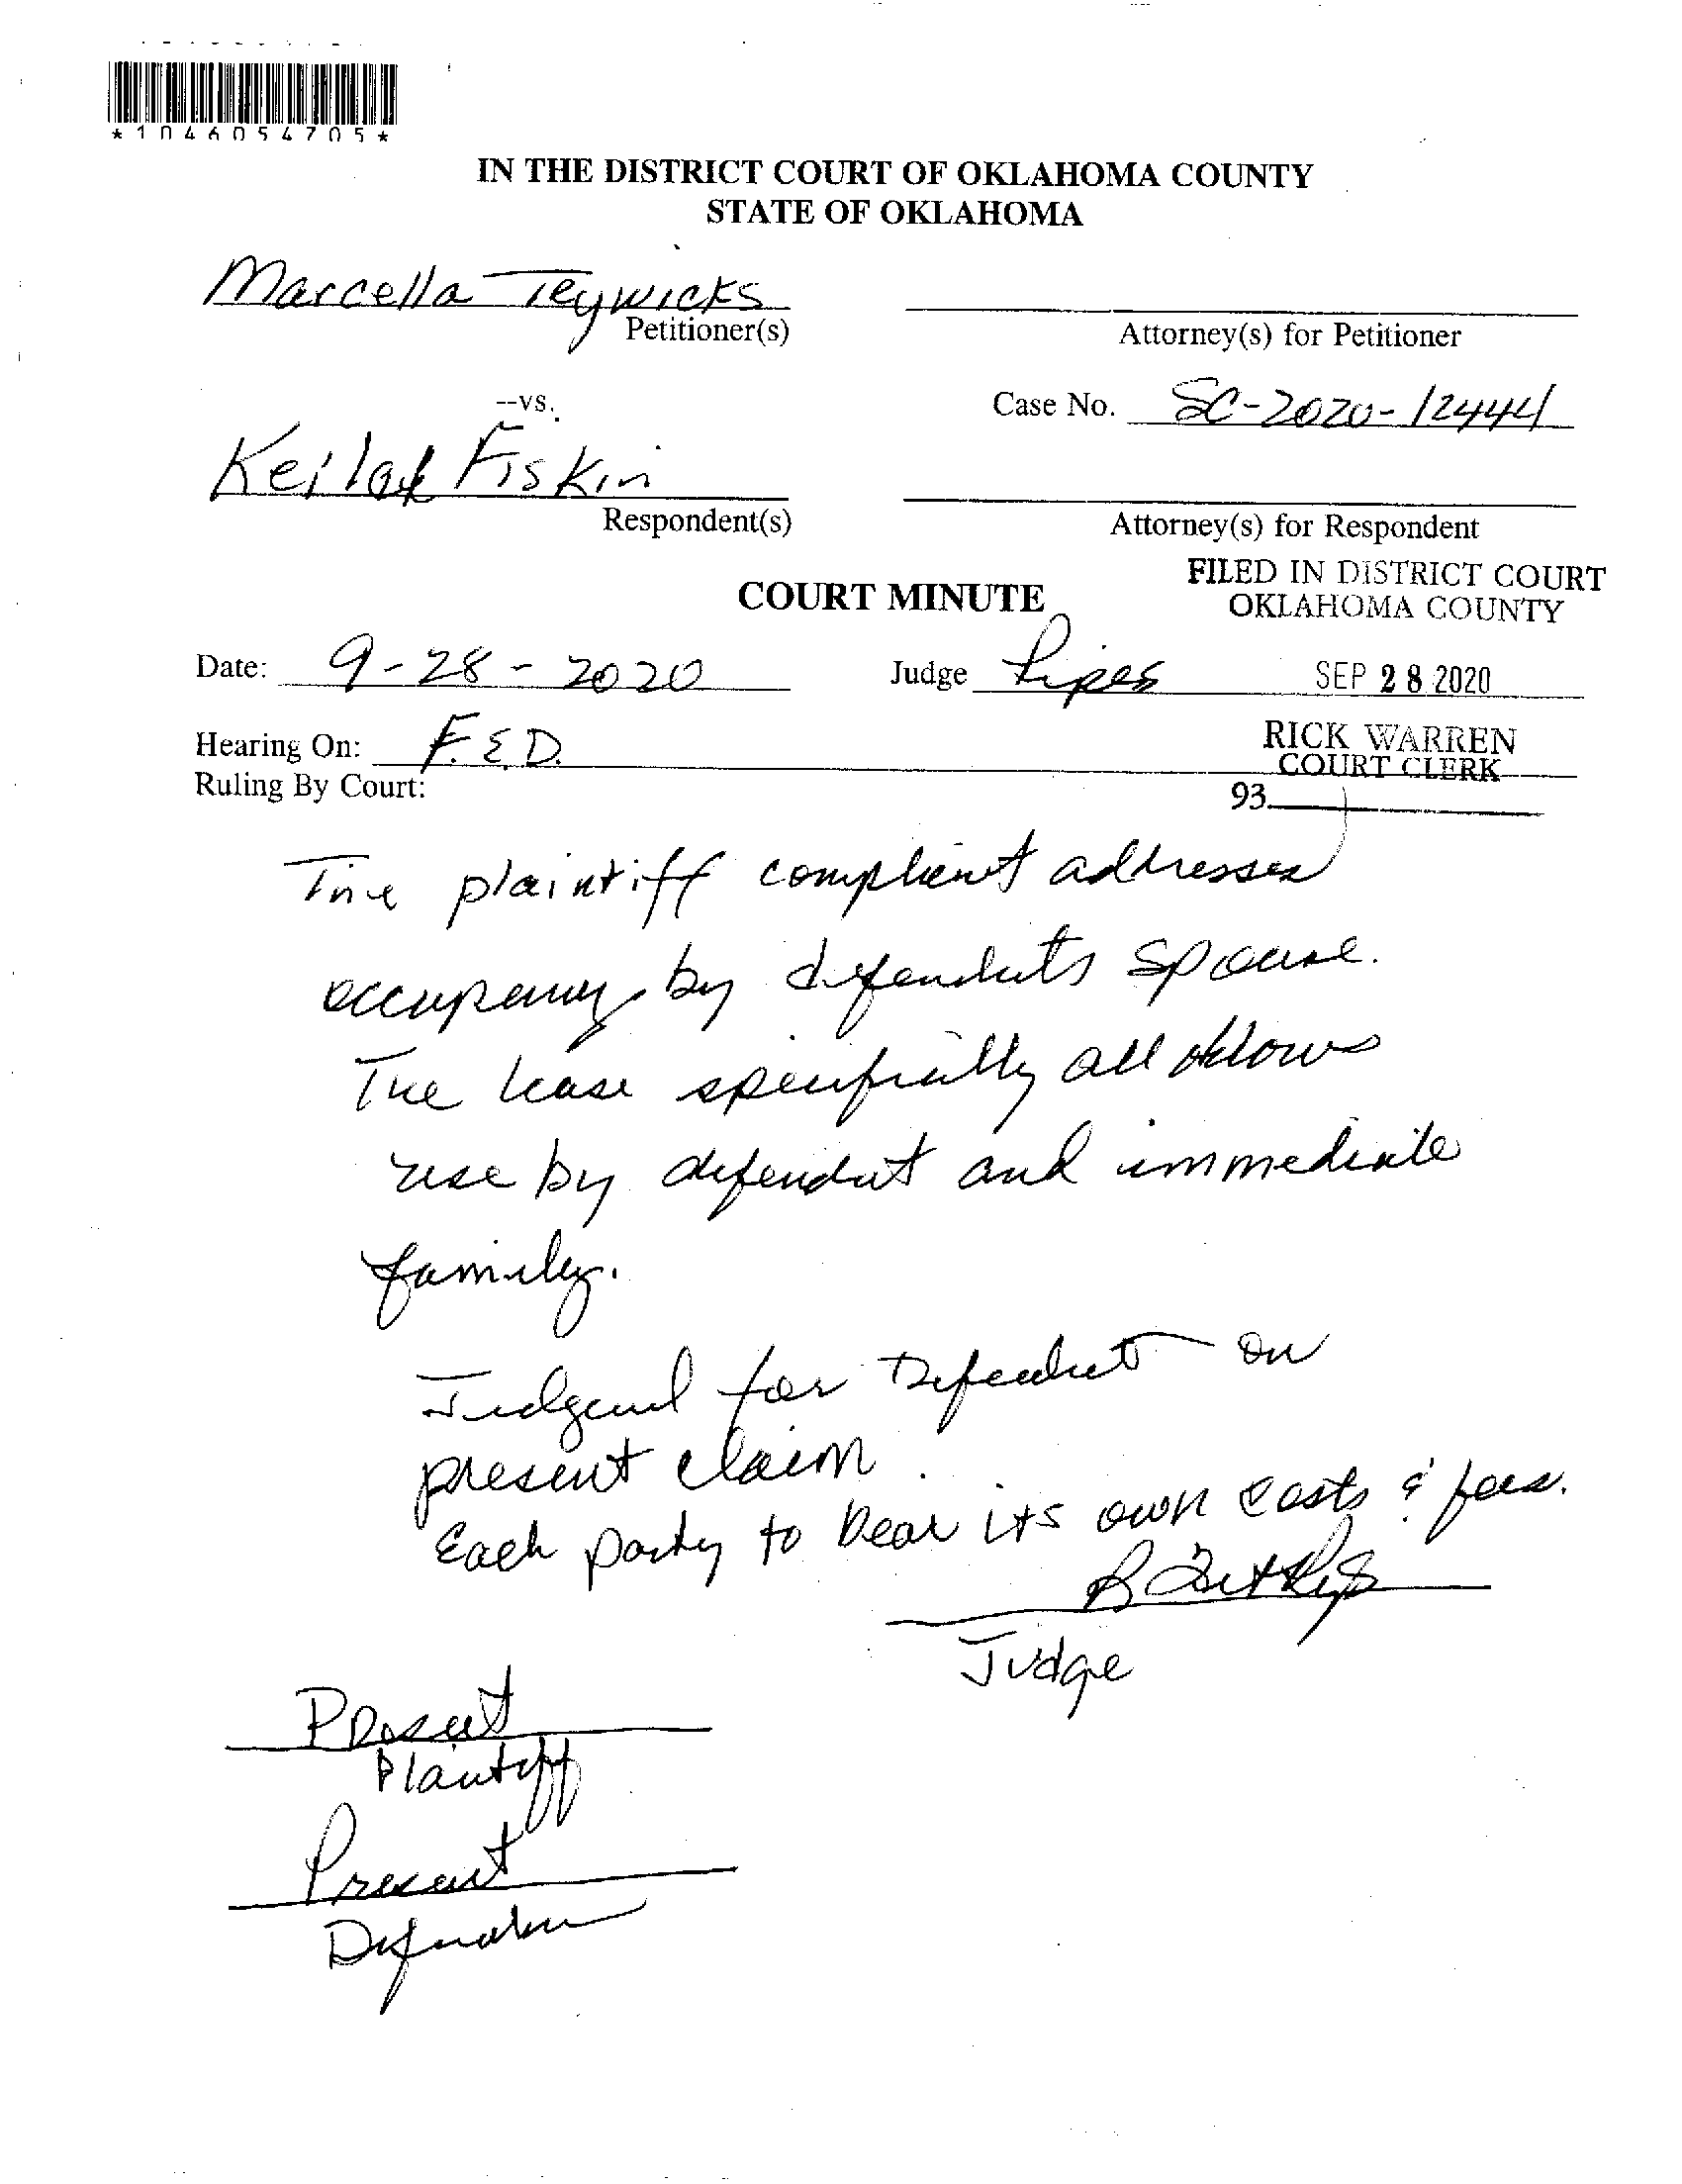 *1046054705*
IN THE DISTRICT COURT OF OKLAHOMA COUNTY
STATE OF OKLAHOMA
Marcella Teywicks
Petitioner(s)
Attorney(s) for Petitioner
--vs.
Case No. SC-2020-12444
Keilah Fiskin
Respondent(s)
Attorney(s) for Respondent
FILED IN DISTRICT COURT
OKLAHOMA COUNTY
COURT MINUTE
Date: 9-28-2020
Judge Pipes
SEP 28 2020
Hearing On: F.E.D.
RICK WARREN
COURT CLERK
Ruling By Court:
93
The plaintiff complient addresses
occupancy by defendants spouse.
The lease specifically all allows
use by defendant and immediate
family.
Judgment for Defendant on
present claim.
Each party to bear its own costs & fees.
Judge
Present
Plaintiff
Present
Defendant